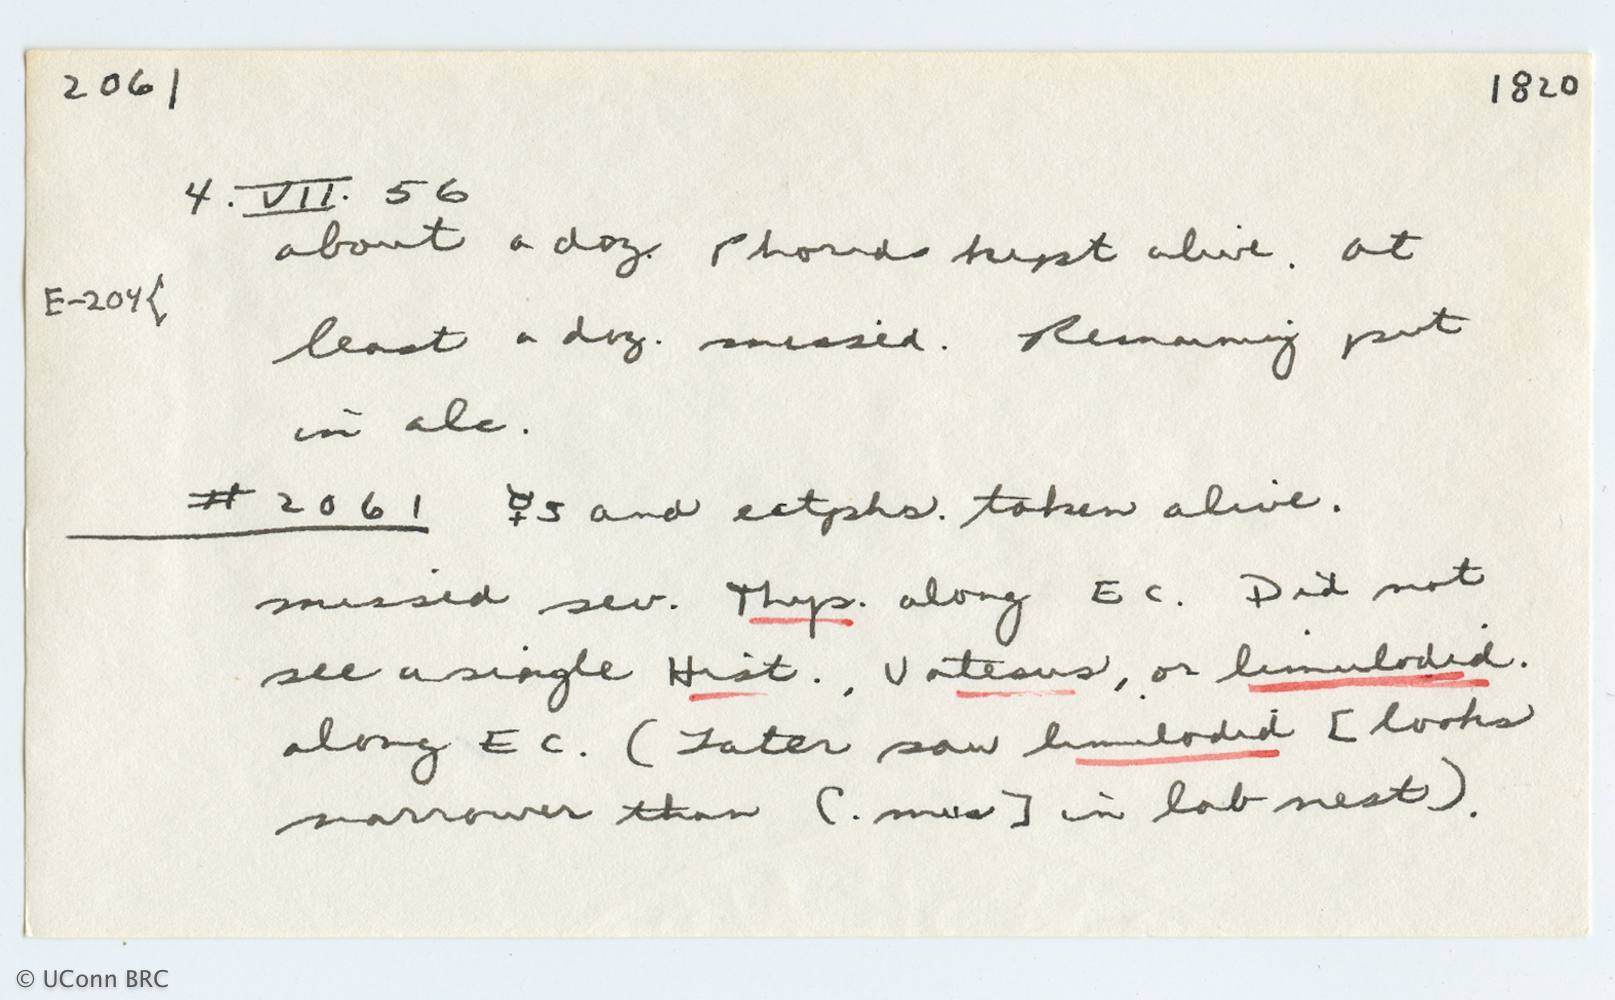 2061 1820
4. VII. 56
about a doz. Phorids kept alive. at
E-204{
least a doz. missed. Remaining put
in alc.
# 2061 ☿s and ectphs. taken alive.
missed sev. Thys. along EC. Did not
see a single Hist., Vatesus, or limulodid.
along EC. (Later saw limulodid [looks
narrower than (. mex] in lab nest).
© UConn BRC